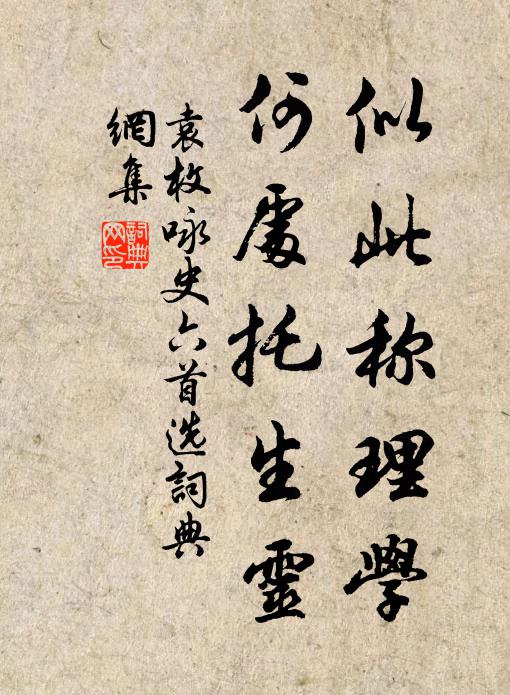 似此称理學
何處托生靈
袁枚咏史六首选詞典
網集
詞典
网印